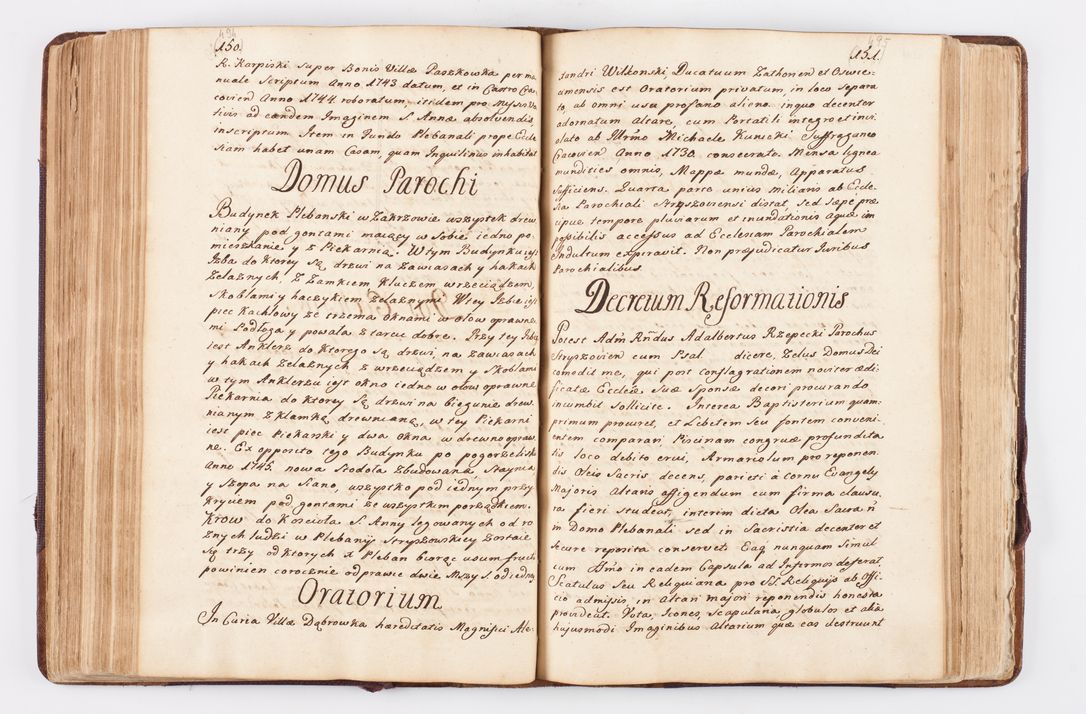 (150.)
R. Karpiński super Bonis Villæ Paszkowka per ma
nuale scriptum Anno 1743 datum, et in Castro Cra
covien Anno 1744 roboratum, itidem pro Missis
ad eandem Imaginem S. Annæ absolvendis
inscriptum. Item in Fundo Plebanali prope Eccle
siam habet unam Casam, quam Inquilinus inhabitat
Domus Parochi
Budynek Plebanski w Zakrzowie wszystek drew
niany pod gontami maiący w sobie iedno po,
mieszkanie y z Piekarnią. W tym Budynku iest
Izba do ktorey są drzwi na zawiasach y hakach
Zelaznych. Z Zamkiem Kluczem wrzeciądzem,
Skoblami y haczykiem zelaznymi. W tey Izbie iest
piec Kachlowy ze trzema oknami w olow oprawne
mi. Podłoga y powala z tarcic dobre. Przy tey Izbie
iest Ankierz do ktorego są drzwi, na zawiasach
y hakach Zelaznych z wrzeciądzem y Skoblami
w tym Ankierzu iest okno iedno w olow oprawne
Piekarnia do ktorey są drzwi na biegunie drew,
nianym z klamką drewnianą, w tey Piekarni
iest piec Piekarski y dwa okna w drewno opraw,
ne. Ex opposito tego Budynku po pogorzelisku
Anno 1745. nowa Stodola zbudowana, Staynia
y Szopa na Siano, wszystko pod iednym przy
kryciem pod gontami ze wszystkim porządkiem.
Krow do Kosciola S. Anny legowanych od ro
znych ludzi w Plebanij Stryszowskiey zostaie
się trzy od ktorych x Pleban biorąc usum fruct
powinien corocznie odprawic dwie Mszy S. od iedney
Oratorium
In Curia Villæ Dąbrowka hæreditatis Magnifici Ale-
495
(151.)
xandri Wilkonski, Ducatuum Zathorien et Oswie-
cimensis est Oratorium privatum, in loco separa
to, ab omni usu profano alieno, in quo decenter
adornatum Altare, cum Portatili integro et invi
olato ab Illrmo Michaele Kunicki Suffraganeo
Cracovien Anno 1730. consecrato. Mensa lignea
mundities omnis, Mappæ mundæ, Apparatus
sufficiens. Quarta parte unius miliaris ab Eccle
sia Parochiali Stryszoviensi distat, sed sæpe præ
cipue tempore pluviarum et inundationis aquæ im
possibilis accessus ad Ecclesiam Parochialem
Indultum expiravit. Non præjudicatur Juribus
Parochialibus
Decretum Reformationis
Potest Adm Rndus Adalbertus Rzepecki Parochus
Stryszovien cum Psal dicere, Zelus Domus Dei
comedit me, qui post conflagrationem noviter ædi-
ficatæ Ecclæ suæ Sponsæ decori procurando
incumbit sollicite. Interea Baptisterium quam-
primum procuret, et Lebetem seu fontem conveni-
entem comparari Piscinam congruæ profundita
tis loco debito erui, Armariolum pro reponen
dis Oleis Sacris decens, parieti a Cornu Evangely
Majoris Altaris affigendum cum firma clausu,
ra fieri studeat, interim dicta Olea Sacra n
in Domo Plebanali sed in Sacristia decenter et
secure reposita conservet. Eaq nunquam simul
cum in eadem Capsula ad Infirmos deferat.
Scatulas seu Reliquiaria pro SS. Reliquijs ab Offi
cio admissis in Altari majori reponendis honesta
provideat. Vota, Icones, scapularia, globulos et alia
hujusmodi Imaginibus Altarium quæ eas destruunt